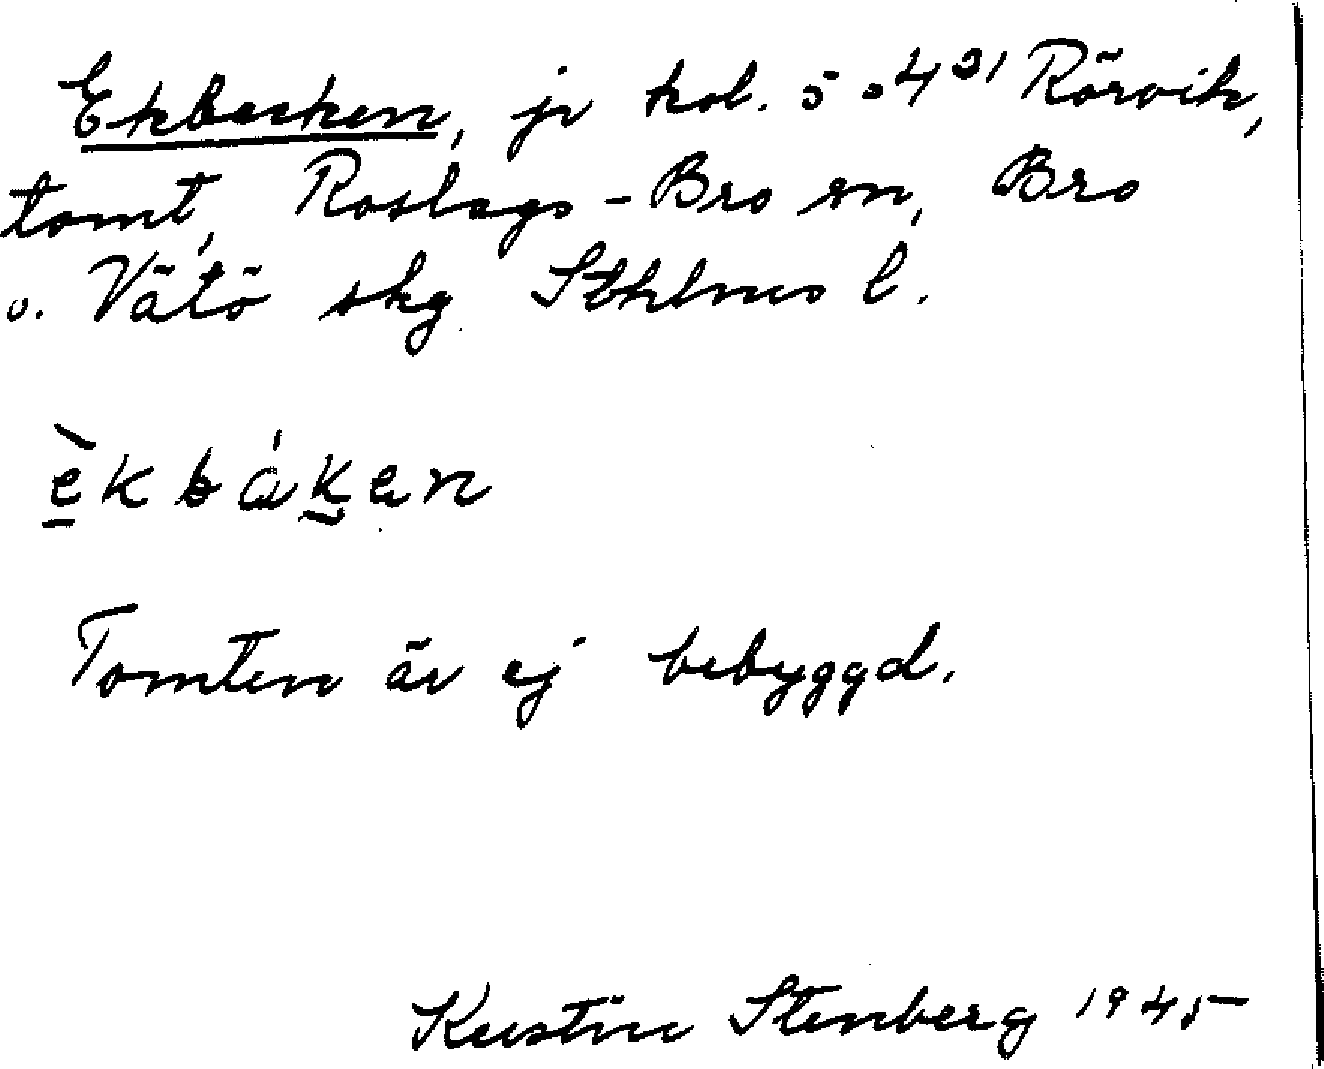 Ekbacken, jr kol. 5 o 4²¹ Rörvik,
tomt, Roslags-Bro sn, Bro
o. Vätö skg Sthlms l.
èkbáken
Tomten är ej bebyggd.
Kerstin Stenberg 1945